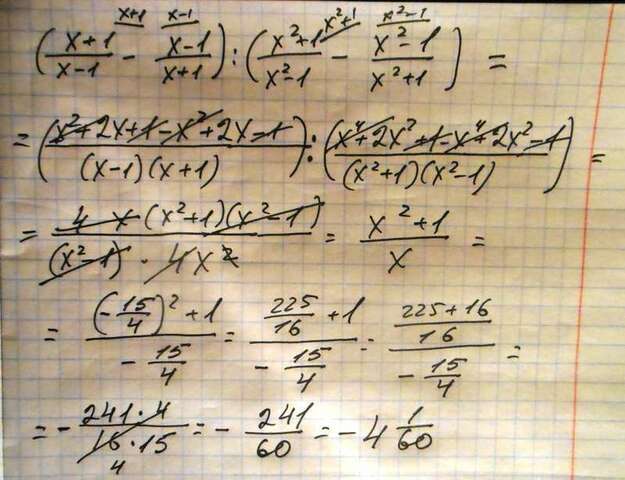 ((x+1)/(x-1) - (x-1)/(x+1)) : ((x²+1)/(x²-1) - (x²-1)/(x²+1)) =
= ((x²+2x+1-x²+2x-1)/((x-1)(x+1))) : ((x⁴+2x²+1-x⁴+2x²-1)/((x²+1)(x²-1))) =
= (4x(x²+1)(x²-1))/((x²-1)·4x²) = (x²+1)/x =
= ((-15/4)²+1)/(-15/4) = (225/16+1)/(-15/4) = ((225+16)/16)/(-15/4) =
= -(241·4)/(16·15) = -241/60 = -4 1/60